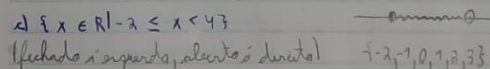 c) {x ∈ R | -2 ≤ x < 4}
(fechado à esquerda, aberto à direita) {-2,-1,0,1,2,3}